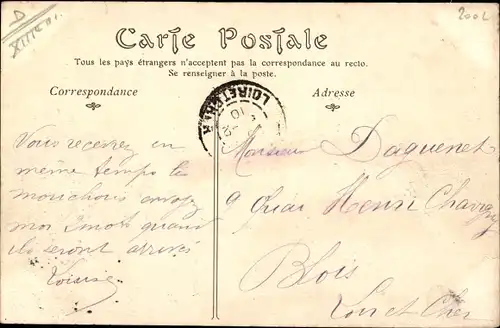 D
XIIIe
200L
Carte Postale
Tous les pays étrangers n'acceptent pas la correspondance au recto.
Se renseigner à la poste.
Correspondance
Adresse
LOIR ET CHER
Vous recevrez en
même temps les
mouchoirs envoyez
moi 2 mots quand
ils seront arrivés
Louise
Monsieur Daguenet
9 Quai Henri Chavigny
Blois
Loir et Cher